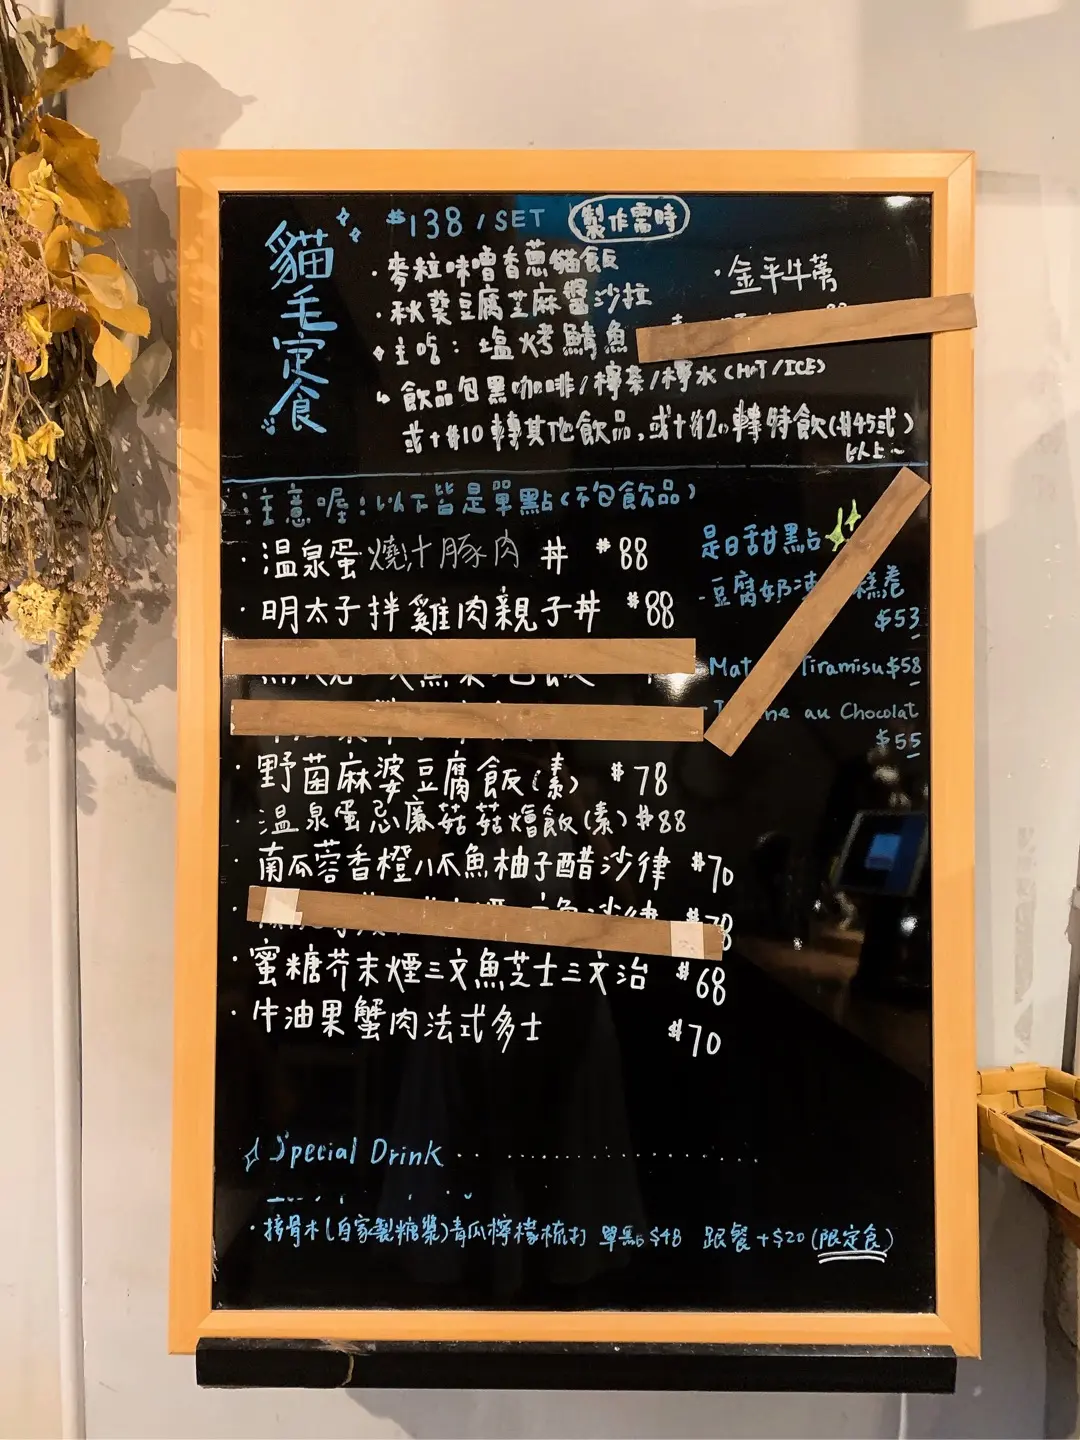 貓毛定食
$138/SET 製作需時
・麥粒味噌香蔥貓飯
・金平牛蒡
・秋葵豆腐芝麻醬沙拉
主吃：塩烤鯖魚
飲品包黑咖啡/檸茶/檸水(HOT/ICE)
或+$10轉其他飲品,或+$20轉特飲($45或以上~)
注意喔!以下皆是單點(不包飲品)
・温泉蛋燒汁豚肉丼 $88
・明太子拌雞肉親子丼 $88
・野菌麻婆豆腐飯(素) $78
・温泉蛋忌廉菇菇燴飯(素) $88
・南瓜蓉香橙八爪魚柚子醋沙律 $70
沙律 $78
・蜜糖芥末煙三文魚芝士三文治 $68
・牛油果蟹肉法式多士 $70
是日甜點
-豆腐奶凍 糕卷
$53
Mat Tiramisu $58
au Chocolat
$55
Special Drink
・接骨木(自家製糖漿)青瓜檸檬梳打 單點$48 跟餐+$20(限定食)